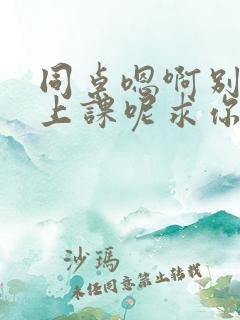 同桌嗯啊别
上課呢求你
沙瑪
未经同意禁止转载